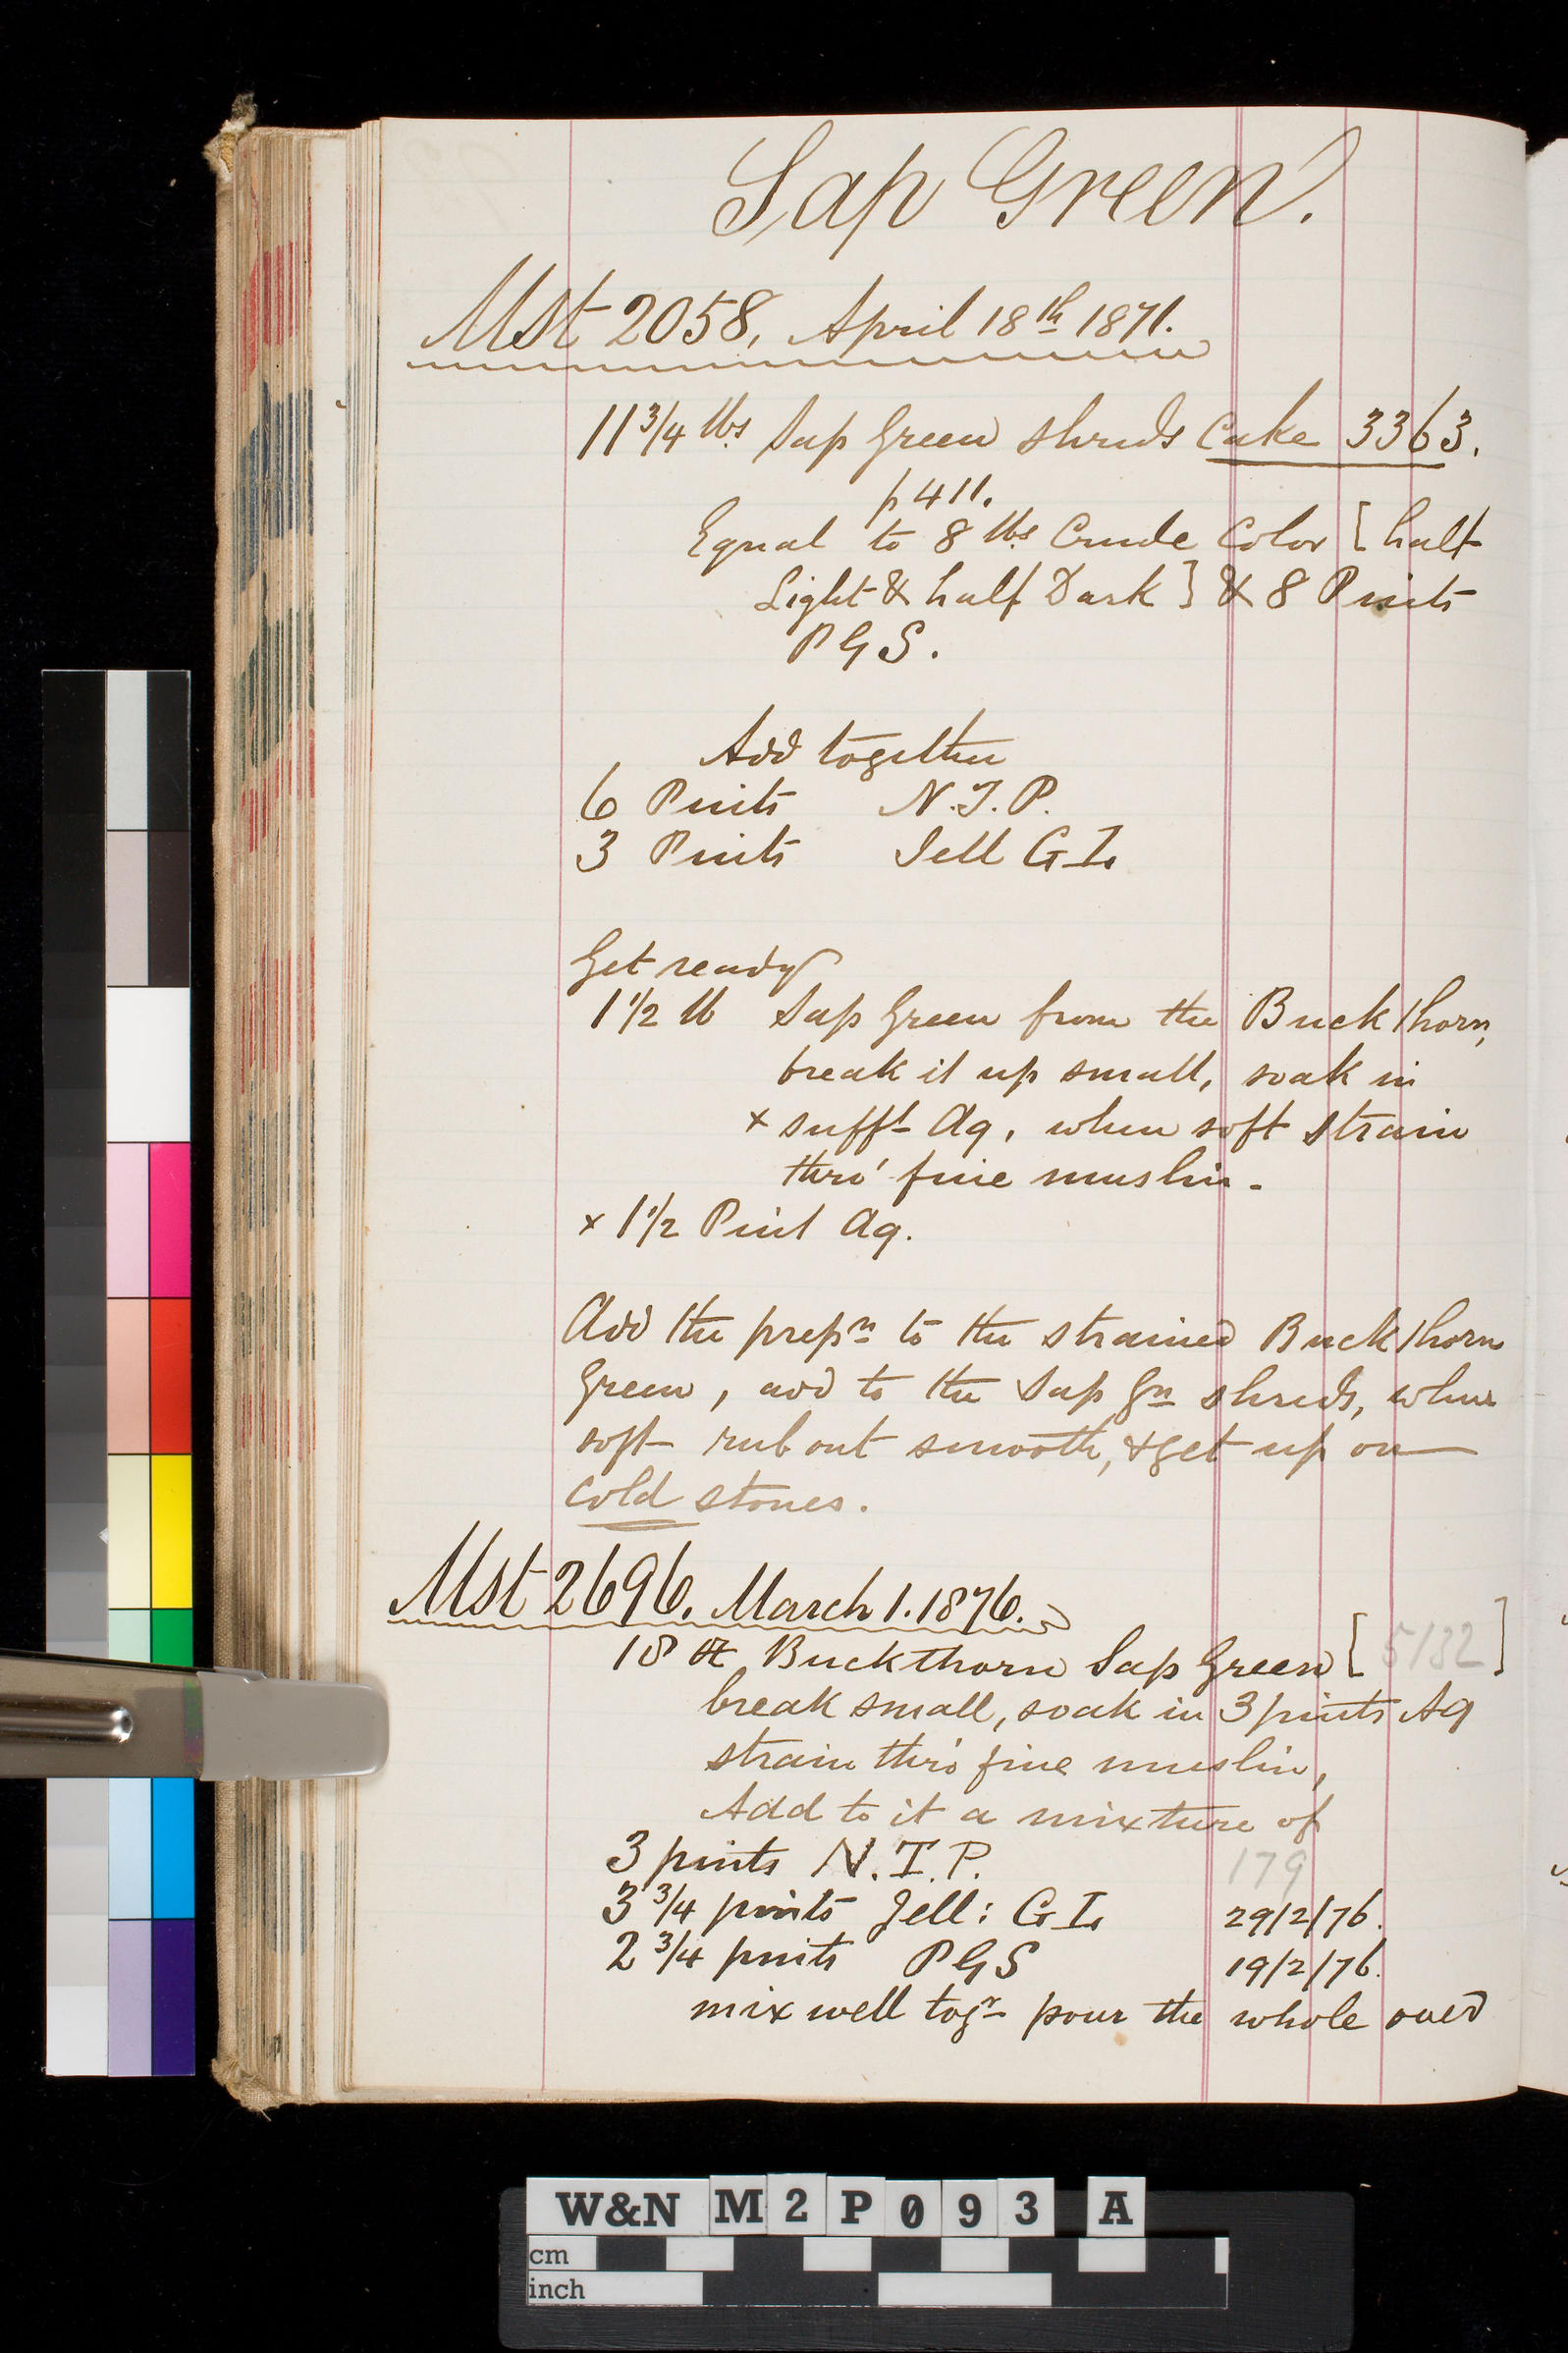 Sap Green.
Mst 2058, April 18th 1871.
11 3/4 lbs Sap Green shreds Cake 3363.
p 411.
Equal to 8 lbs Crude Color [half
Light & half Dark] & 8 Pints
P G S.
Add together
6 Pints N.T.P.
3 Pints Jell G I.
Get ready
1 1/2 lb Sap Green from the Buckthorn,
break it up small, soak in
x sufft Aq, when soft strain
thro' fine muslin.
x 1 1/2 Pint Aq.
Add the prepn to the strained Buckthorn
Green, add to the Sap Gn shreds, when
soft rub out smooth, & get up on
cold stones.
Mst 2696. March 1. 1876.
18 ℔ Buckthorn Sap Green [5/32]
break small, soak in 3 pints Aq
strain thro' fine muslin,
Add to it a mixture of
3 pints N.T.P. 179
3 3/4 pints Jell: G I. 29/2/76.
2 3/4 pints P G S 19/2/76.
mix well togr pour the whole over
W&N M2P093 A
cm
inch